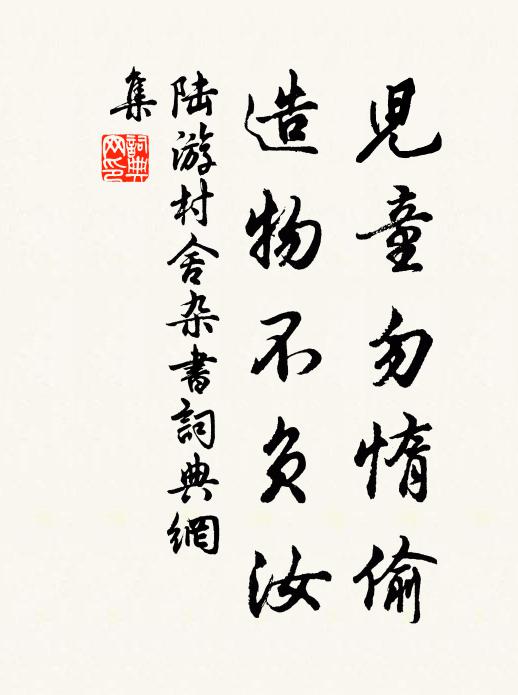 兒童勿惰偷
造物不負汝
陸游村舍杂書詞典網
集
詞典
网印